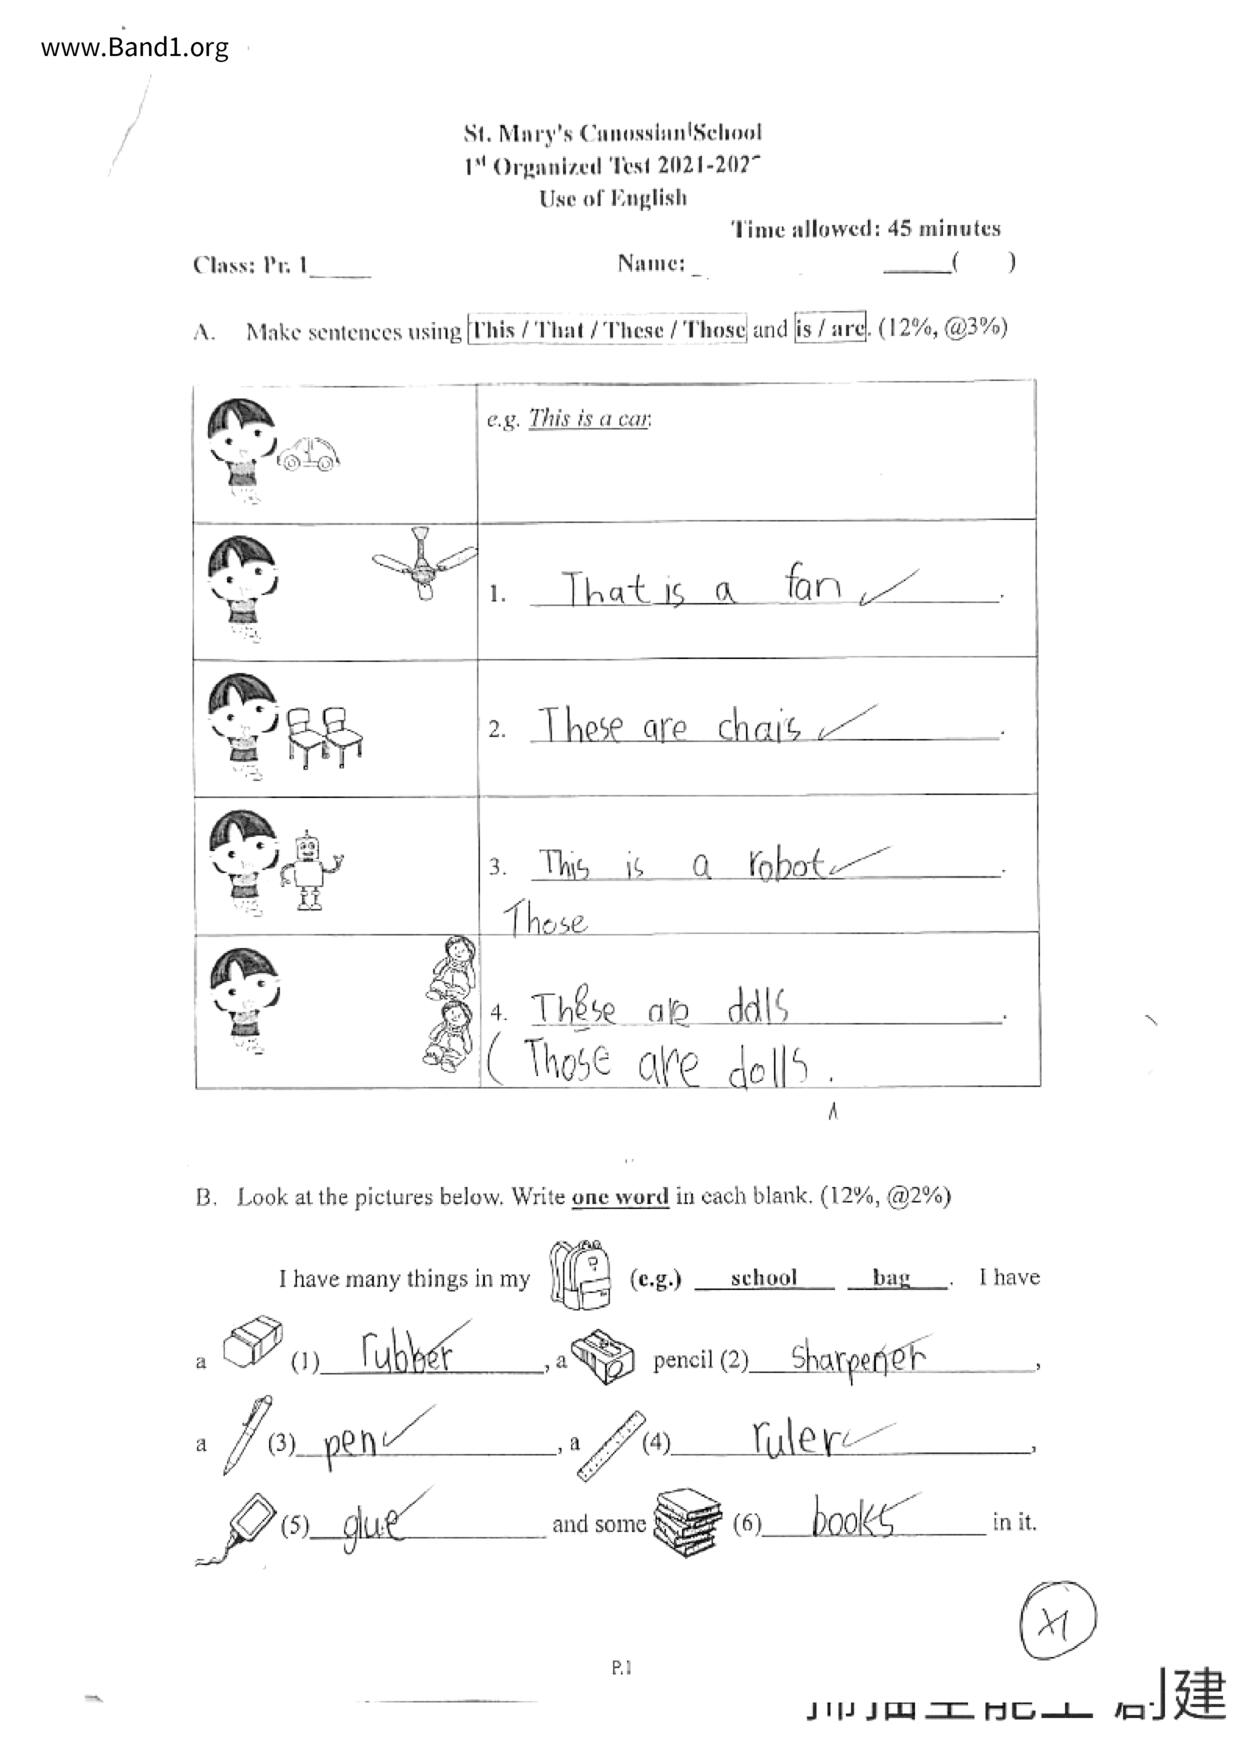 www.Band1.org
St. Mary's Canossian School
1st Organized Test 2021-202
Use of English
Time allowed: 45 minutes
Class: Pr. 1_____ Name: _ _____( )
A. Make sentences using This / That / These / Those and is / are. (12%, @3%)
e.g. This is a car.
1. That is a fan.
2. These are chais.
3. This is a robot.
Those
4. These are dolls.
( Those are dolls.
B. Look at the pictures below. Write one word in each blank. (12%, @2%)
I have many things in my (e.g.) school bag. I have
a (1) rubber, a pencil (2) sharpener,
a (3) pen, a (4) ruler,
(5) glue and some (6) books in it.
P.1
創建